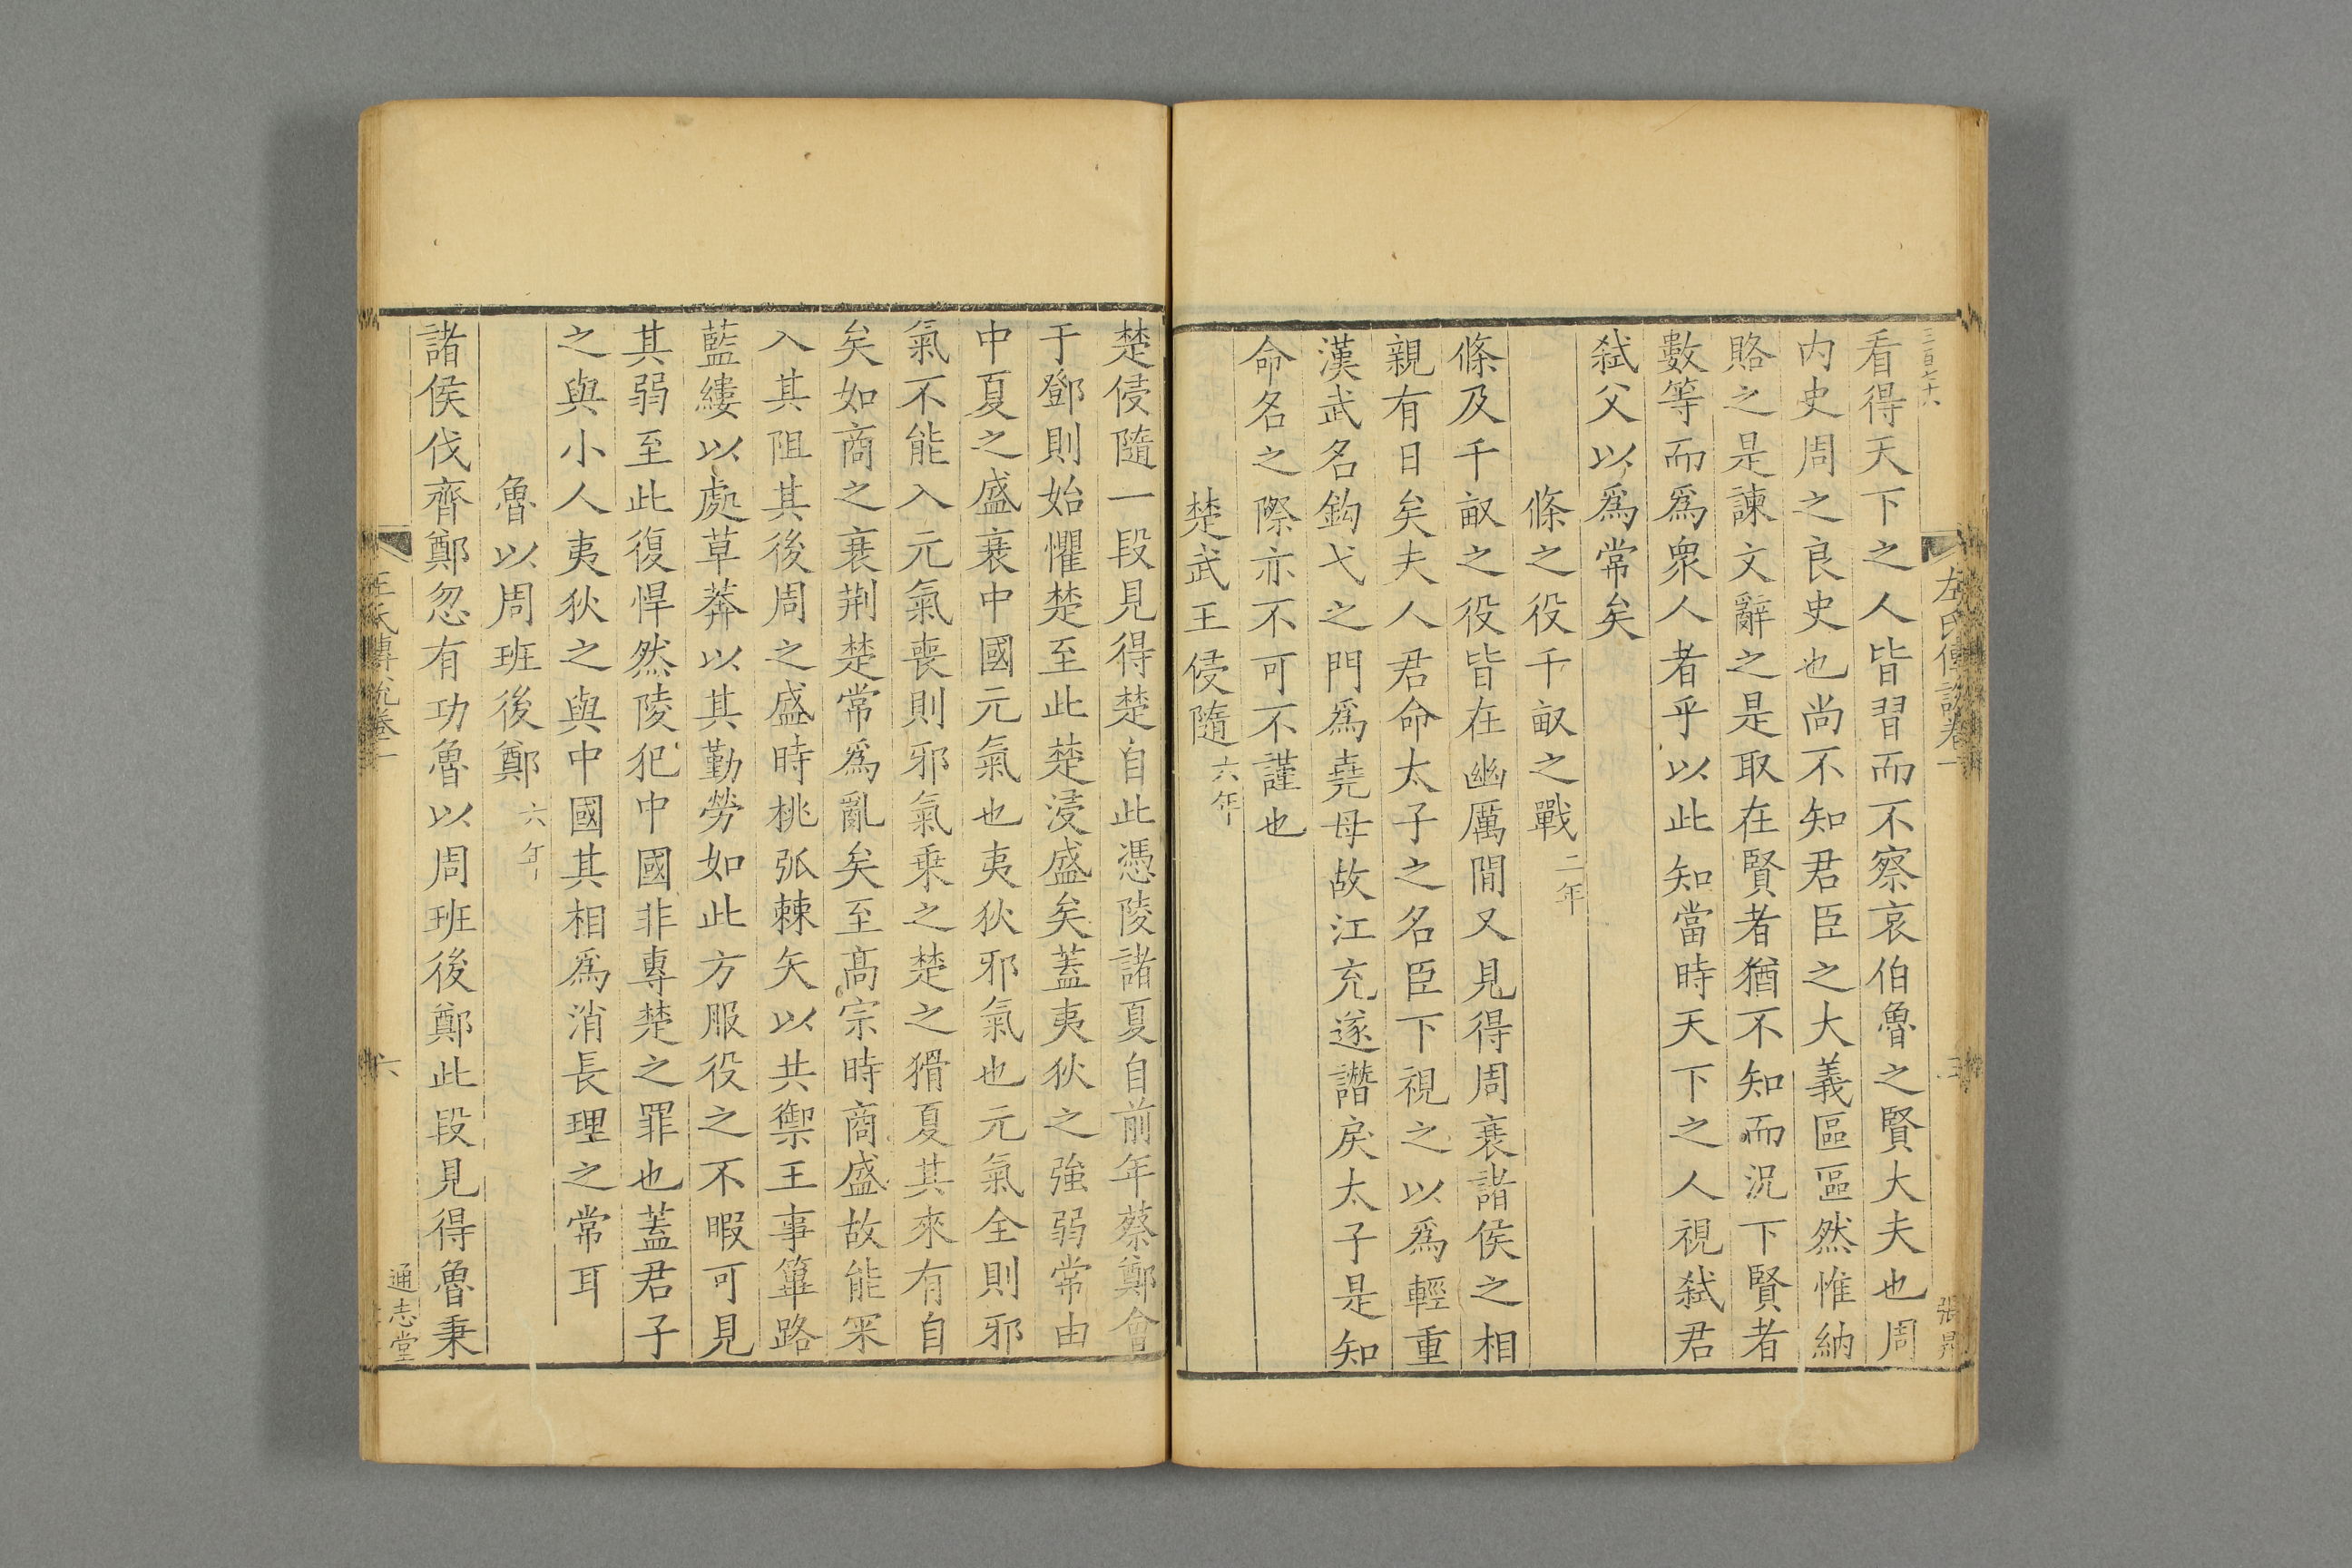 三百七十六
左氏傳說卷一
看得天下之人皆習而不察哀伯魯之賢大夫也周
内史周之良史也尚不知君臣之大義區區然惟納
賂之是諫文辭之是取在賢者猶不知而況下賢者
數等而爲衆人者乎以此知當時天下之人視弑君
弑父以爲常矣
條之役千畝之戰二年
條及千畝之役皆在幽厲間又見得周衰諸侯之相
親有日矣夫人君命太子之名臣下視之以爲輕重
漢武名鈎弋之門爲堯母故江充遂譖戾太子是知
命名之際亦不可不謹也
楚武王侵隨六年
楚侵隨一段見得楚自此憑陵諸夏自前年蔡鄭會
于鄧則始懼楚至此楚浸盛矣蓋夷狄之強弱常由
中夏之盛衰中國元氣也夷狄邪氣也元氣全則邪
氣不能入元氣喪則邪氣乗之楚之猾夏其來有自
矣如商之衰荆楚常爲亂矣至髙宗時商盛故能罙
入其阻其後周之盛時桃弧棘矢以共禦王事篳路
藍縷以處草莽以其勤勞如此方服役之不暇可見
其弱至此復悍然陵犯中國非專楚之罪也蓋君子
之與小人夷狄之與中國其相爲消長理之常耳
魯以周班後鄭六年
諸侯伐齊鄭忽有功魯以周班後鄭此段見得魯秉
左氏傳說卷一
六
通志堂